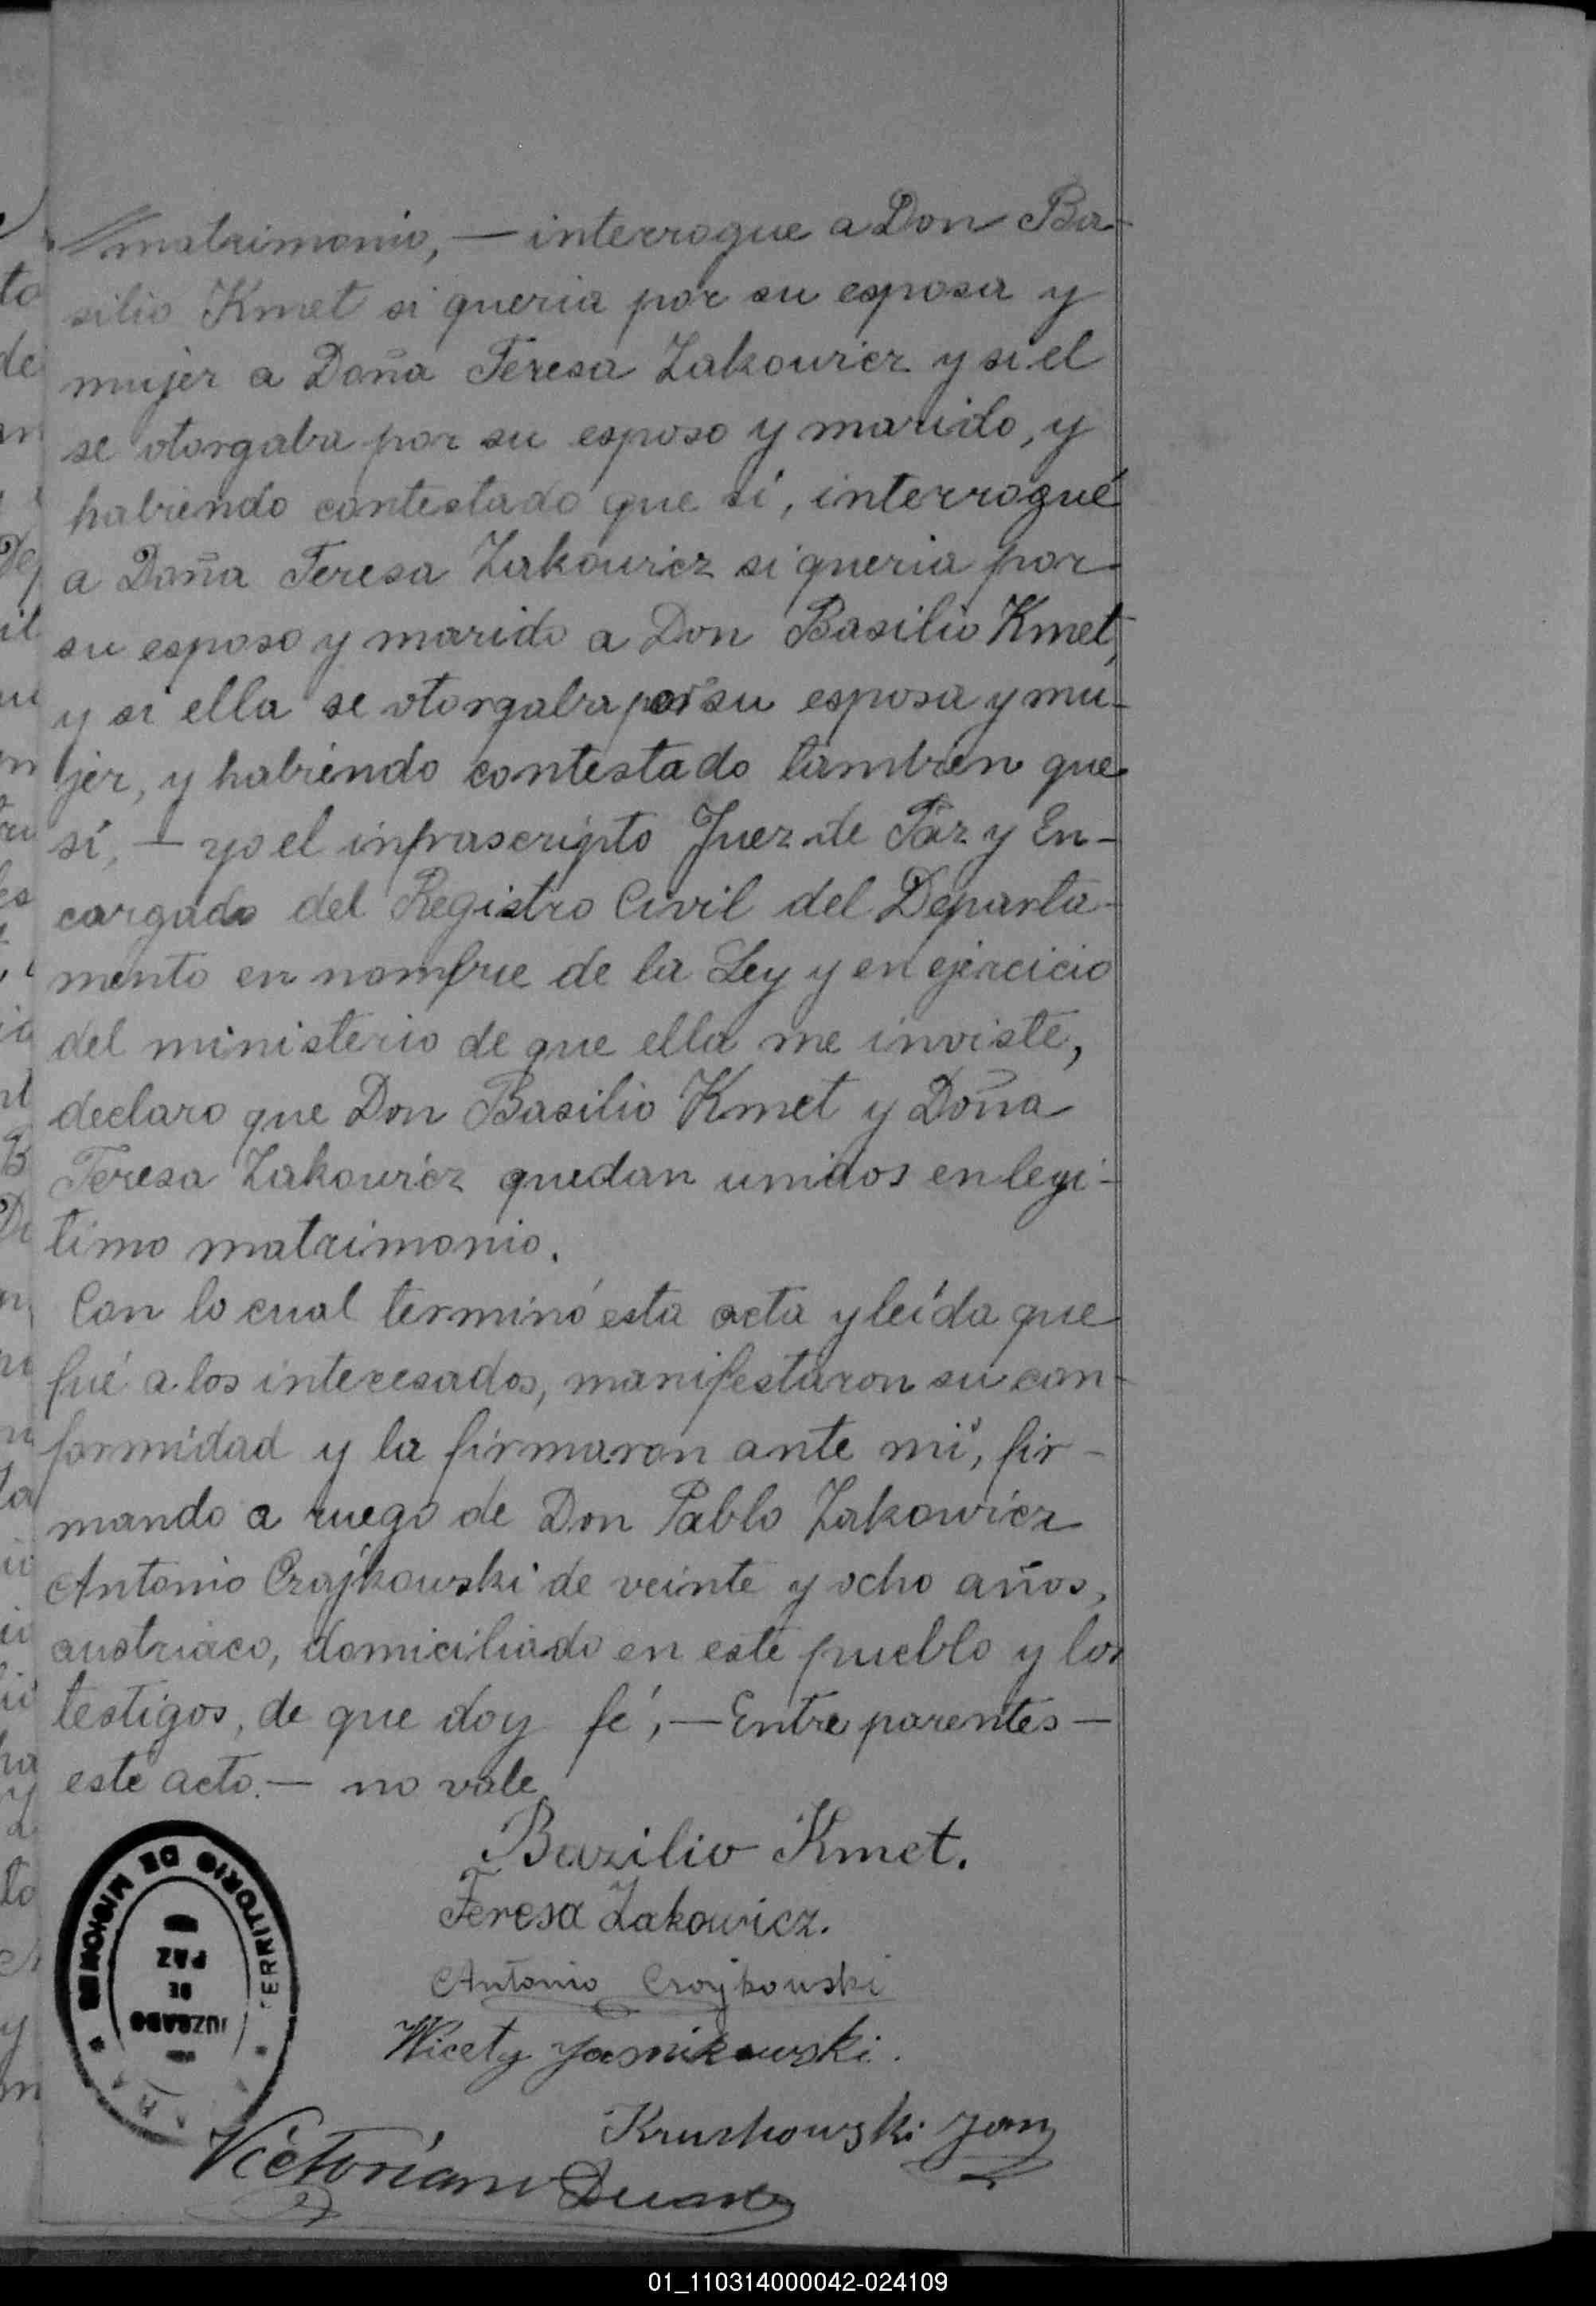 matrimonio, — interrogue a Don Ba-
silio Kmet si queria por su esposa y
mujer a Doña Teresa Zakowicz y si el
se otorgaba por su esposo y marido, y
habiendo contestado que sí, interrogué
a Doña Teresa Zakowicz si queria por
su esposo y marido a Don Basilio Kmet,
y si ella se otorgaba por su esposa y mu-
jer, y habiendo contestado tambien que
sí, — yo el infrascripto Juez de Paz y En-
cargado del Registro Civil del Departa-
mento en nombre de la Ley y en ejercicio
del ministerio de que ella me inviste,
declaro que Don Basilio Kmet y Doña
Teresa Zakowicz quedan unidos en legi-
timo matrimonio.
Con lo cual terminó esta acta y leída que
fué a los interesados, manifestaron su con-
formidad y la firmaron ante mi, fir-
mando a ruego de Don Pablo Zakowicz
Antonio Crajkowski de veinte y ocho años,
austriaco, domiciliado en este pueblo y los
testigos, de que doy fé, — Entre parentes —
este acto. — no vale
Bazilio Kmet.
Teresa Zakowicz.
Antonio Crajkowski
TERRITORIO DE MISIONES
JUZGADO
DE
PAZ
Jan
01_110314000042-024109